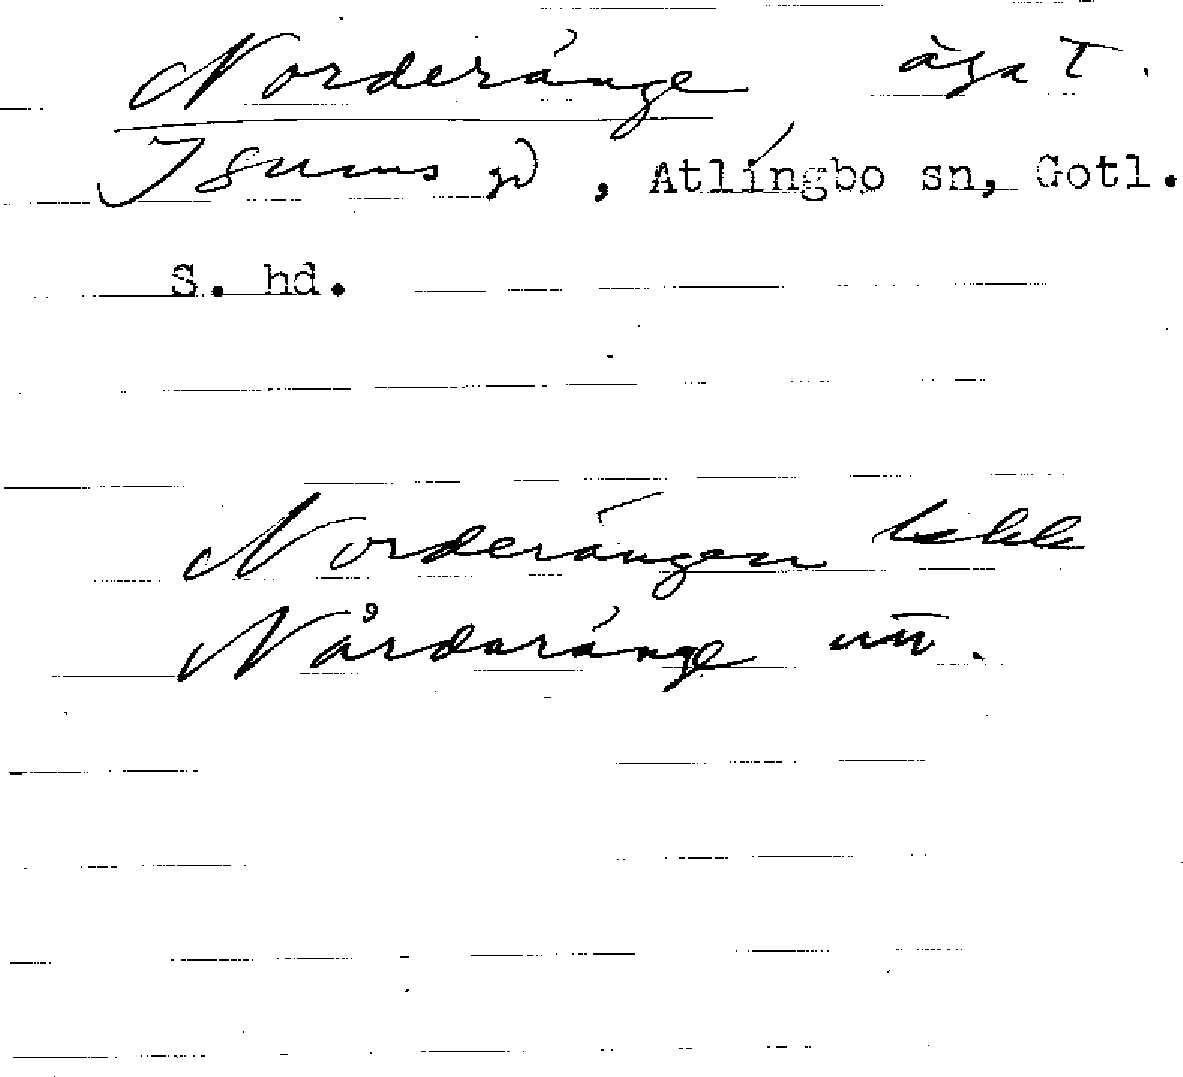 Norderänge äga T.
Isums gd, Atlingbo sn, Gotl.
S. hd.
Norderängen
Nårdaränge